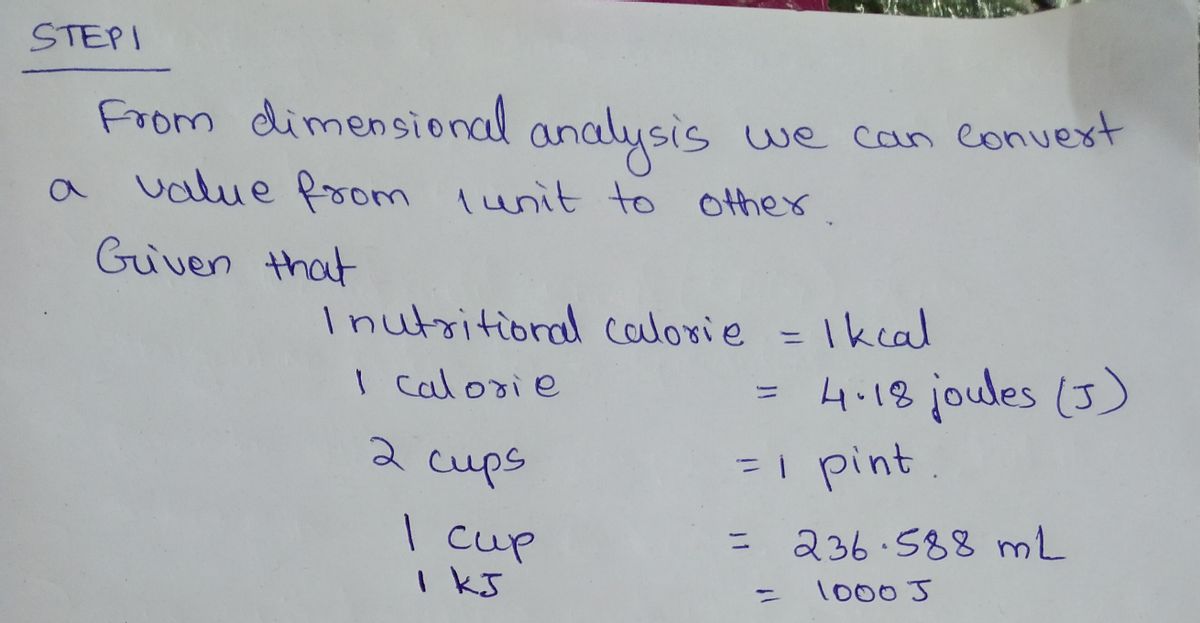 STEP 1
From dimensional analysis we can convert
a value from 1 unit to other.
Given that
1 nutritional calorie = 1 kcal
1 calorie = 4.18 joules (J)
2 cups = 1 pint.
1 cup = 236.588 mL
1 kJ = 1000 J